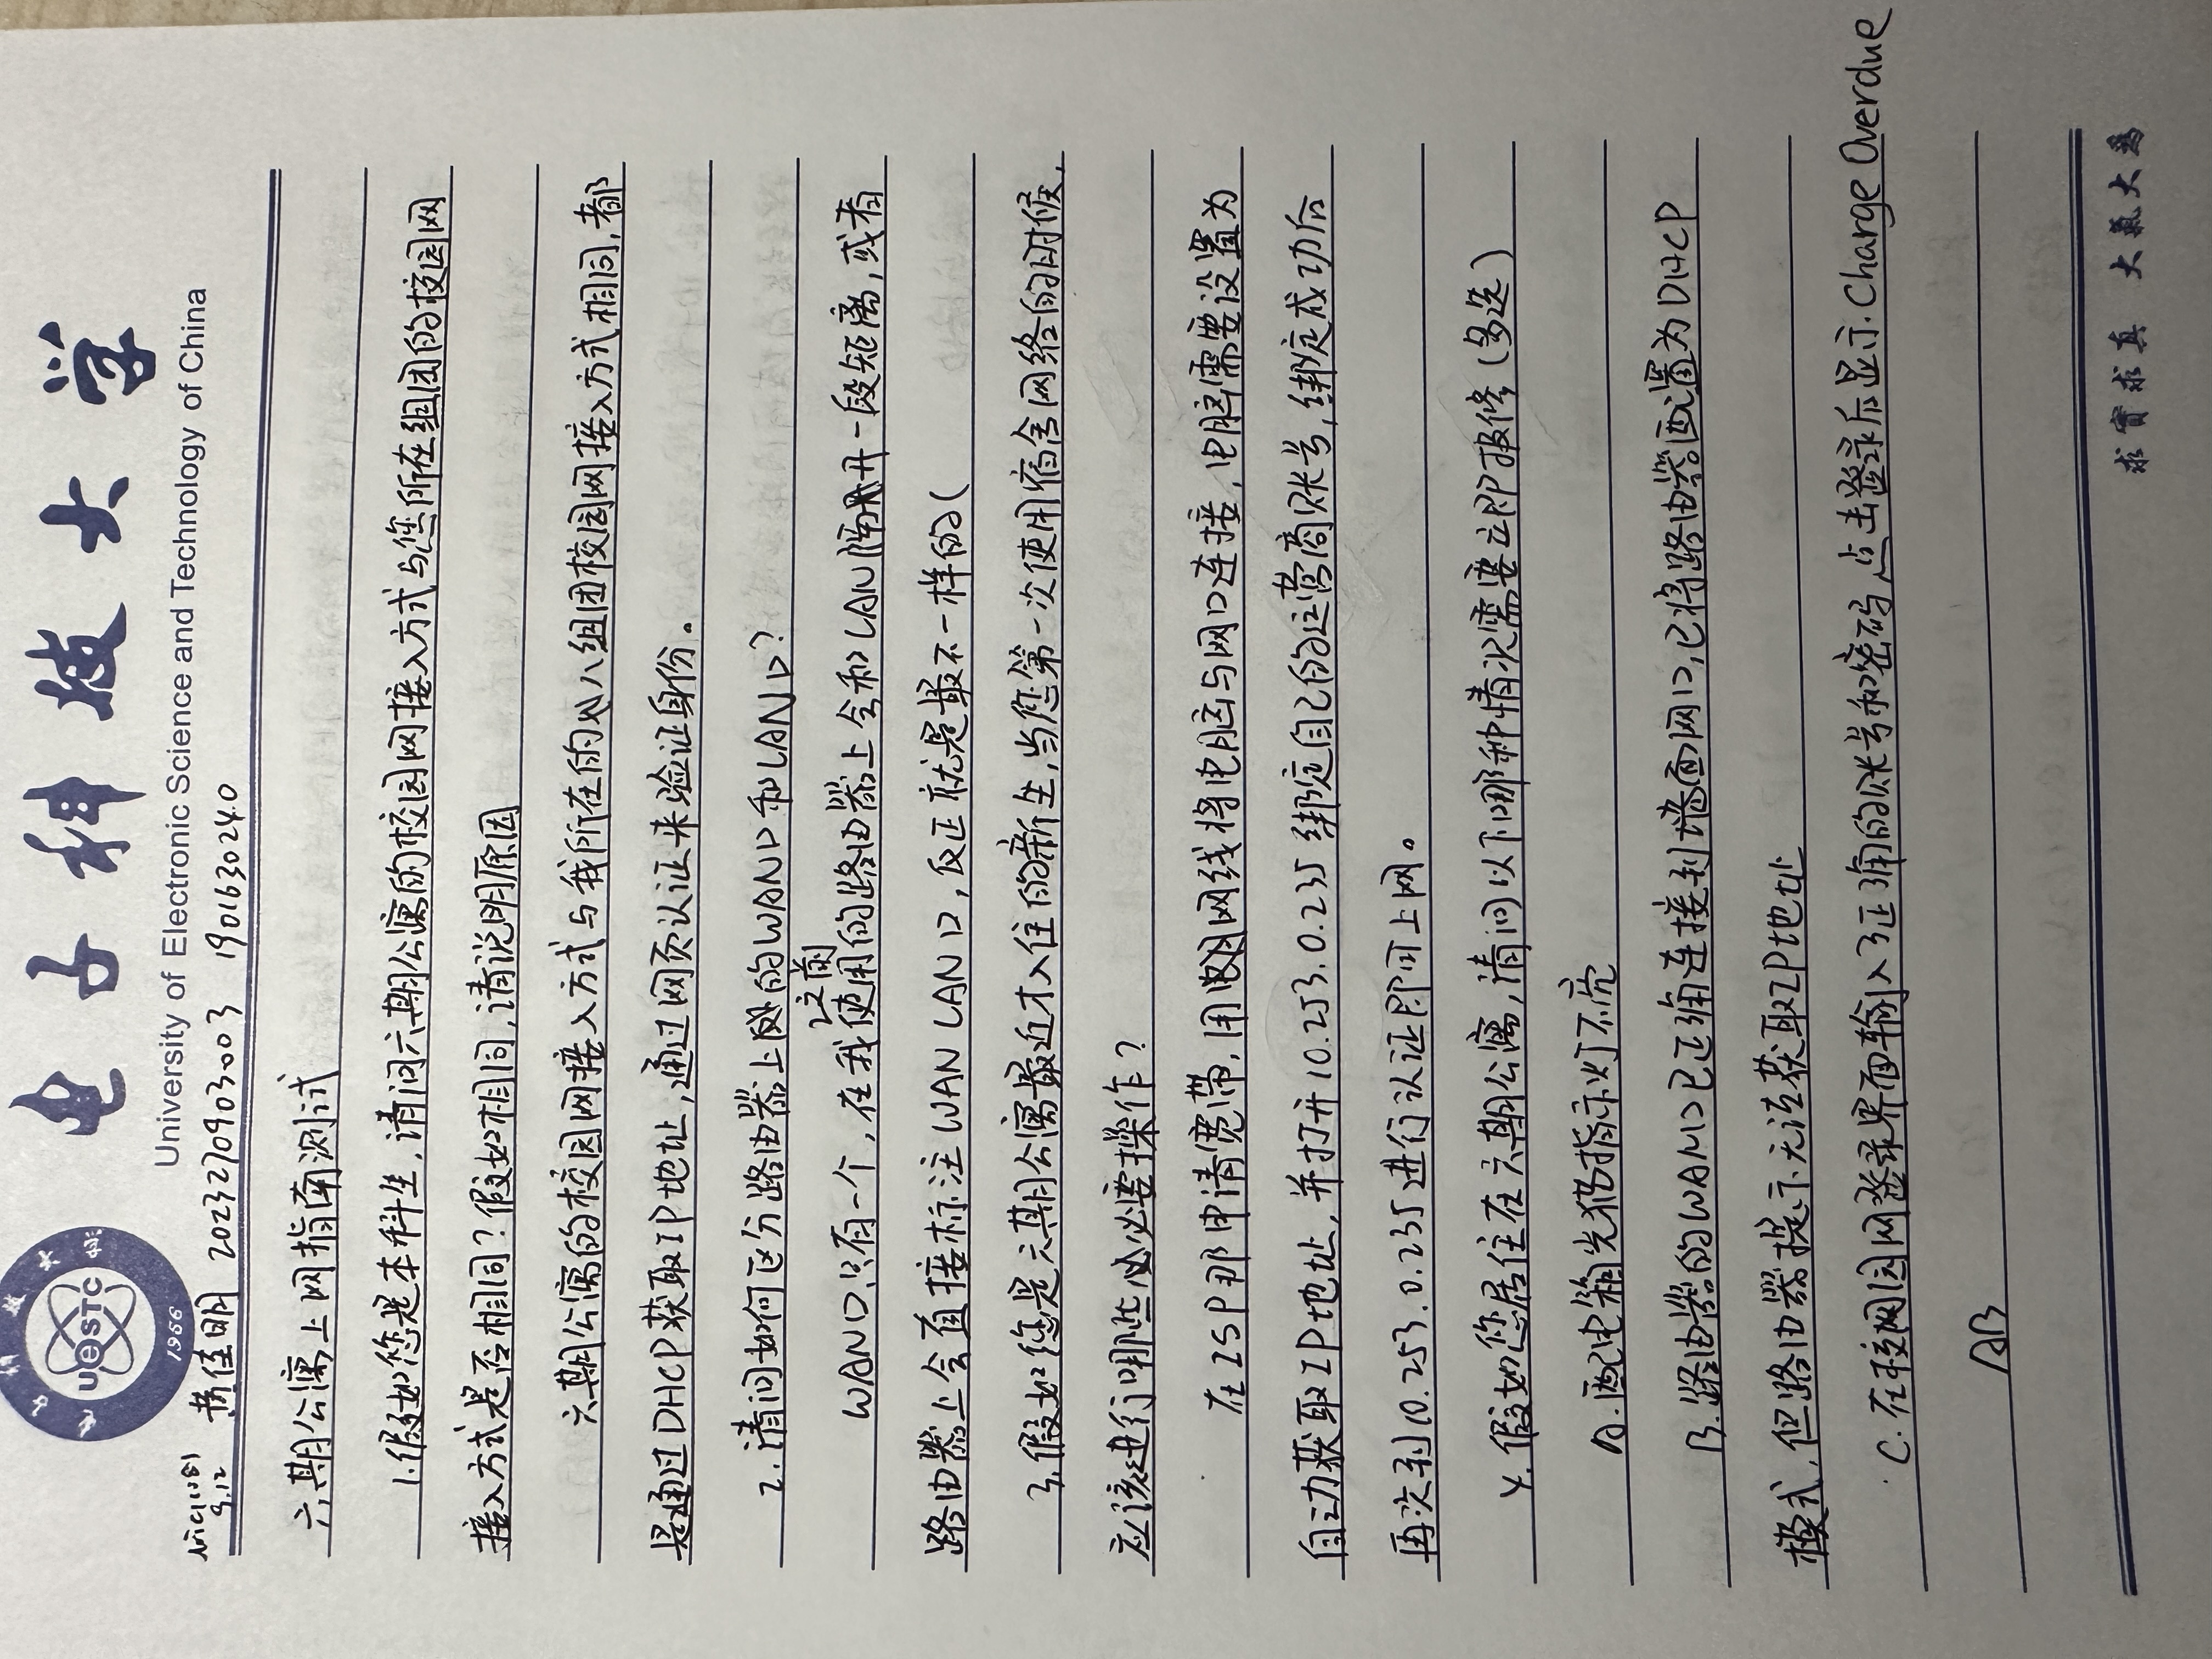 电子科技大学
UeSTC
1956
电子科技大学
University of Electronic Science and Technology of China
9.12 黄佳明 2023270903003 1901630240
六期公寓上网指南测试
1.假如您是本科生,请问六期公寓的校园网接入方式与您所在组团的校园网
接入方式是否相同?假如相同,请说明原因
六期公寓的校园网接入方式与我所在的八组团校园网接入方式相同,都
是通过DHCP获取IP地址,通过网页认证来验证身份。
2.请问如何区分路由器上的WAN口和LAN口?
之前
WAN口只有一个,在我使用的路由器上会和LAN隔开一段距离,或者
路由器上会直接标注WAN LAN口,反正就是最不一样的(
3.假如您是六期公寓最近才入住的新生,当您第一次使用宿舍网络的时候,
应该进行哪些必要操作?
在ISP那申请宽带,用网线将电脑与网口连接,电脑需要设置为
自动获取IP地址,并打开10.253.0.235绑定自己的运营商账号,绑定成功后
再次到10.253.0.235进行认证即可上网。
4.假如您居住在六期公寓,请问以下哪种情况需要立即报修(多选)
A.配电箱光猫指示灯不亮
B.路由器的WAN口已正确连接到墙面网口,已将路由器配置为DHCP
模式,但路由器提示无法获取IP地址
C.在校园网登录界面输入了正确的账号和密码,点击登录后显示Charge Overdue
AB
求實求真 大氣大為